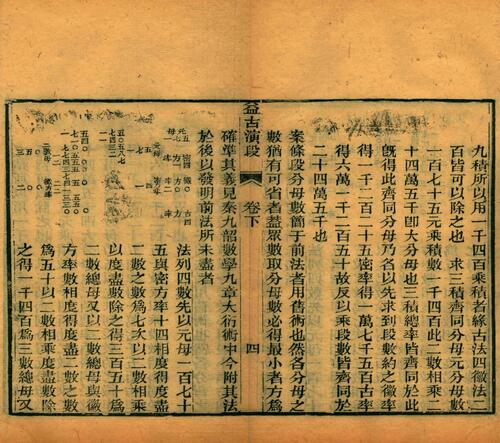 九積所以用一千四百乘積者緣古法四徽法二
百皆可以除之也　求三積齊同分母元分母數
一百七十五元乘積數一千四百此二數相乘二
十四萬五千即大分母也三積總率皆齊同於此
旣得此齊同分母乃各以先求到段數約之徽率
得一千二百二十五密率得一萬七千五百古率
得六萬一千二百五十故反以乘段數皆齊同於
二十四萬五千
案條段分母數簡于前法者用舊術也然各分母
數猶有可省者蓋眾數取分母數必得最小者方爲
確準其義見秦九韶數學九章大衍術中今附其法
於後以發明前法所未盡者
益古演段
卷下
四
法列四數先以元母一百七十
五與密方率十四相度得度盡
二數之數爲七次以二數相乘
以度盡數除之得三百五十爲
二數總母又以二數總母與徽
方率數相度得度盡二數之數
爲五十以二數相乘度盡數除
之得一千四百爲三數總母又